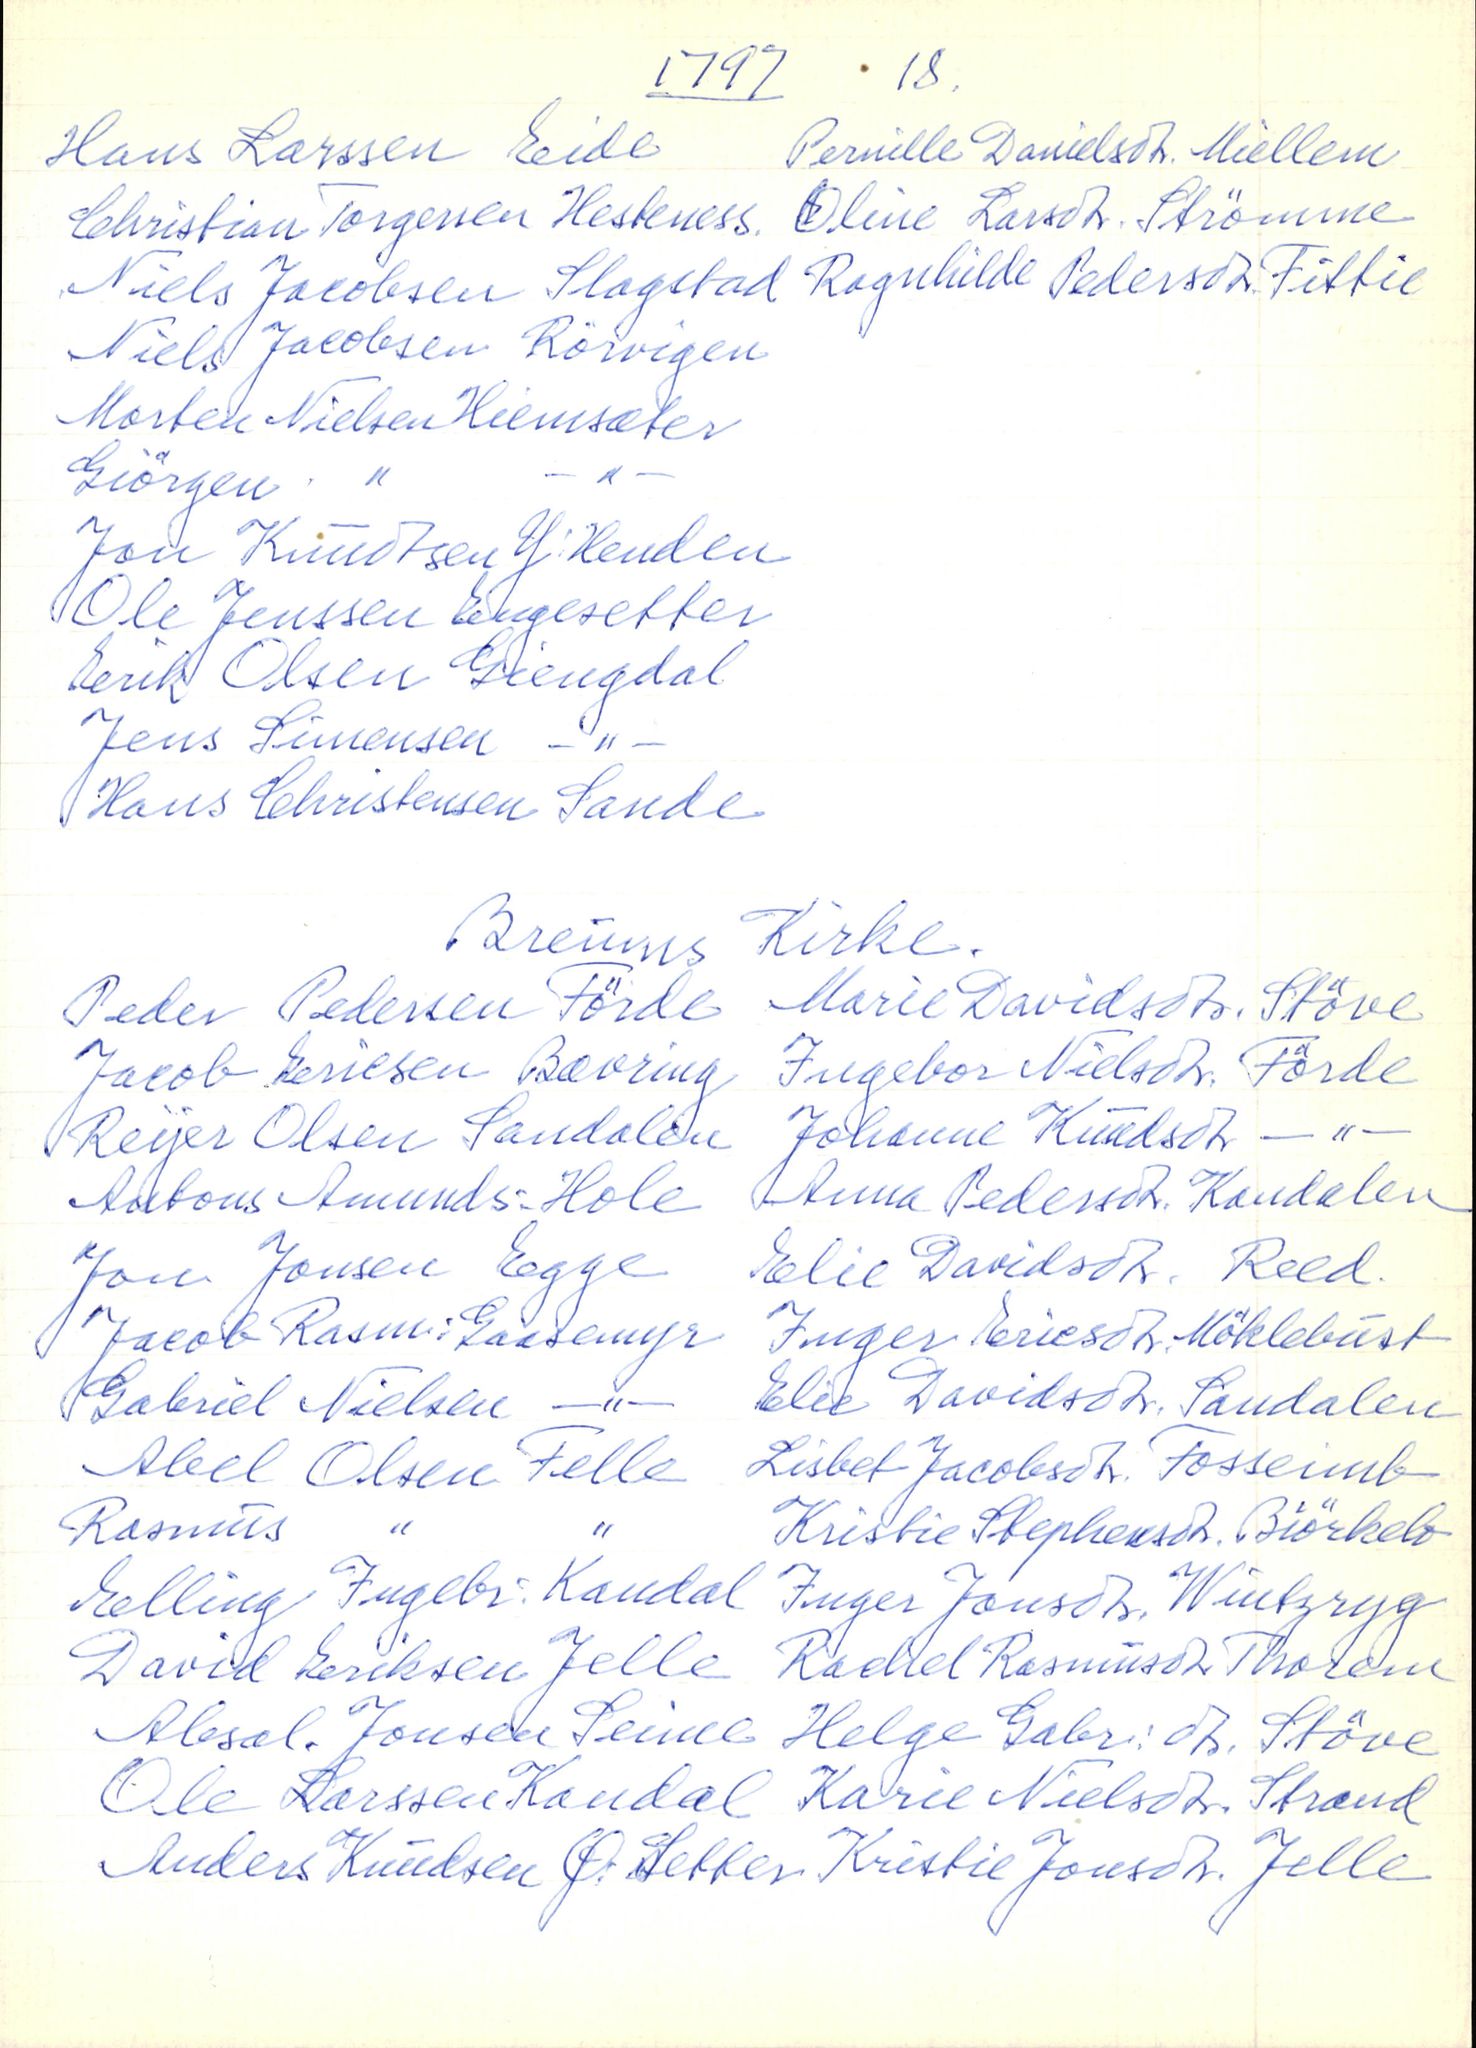 1797 · 18.
Hans Larssen Eide Pernille Danielsdtr. Miellem
Christian Torgersen Hesteness. Oline Larsdtr. Strömme
Niels Jacobsen Slagstad Ragnhilde Pedersdtr. Fittie
Niels Jacobsen Rörvigen
Morten Nielsen Hiemsæter
Giörgen " -"-
Jon Knudtsen Y: Henden
Ole Jenssen Engesetter
Eerik Olsen Giengdal
Jens Simensen -"-
Hans Christensen Sande
Breums Kirke.
Peder Pedersen Förde Marie Davidsdtr. Stöve
Jacob Ericsen Bævring Ingebor Nielsdtr. Förde
Reijer Olsen Sandalen Johanne Knudsdtr -"-
Antons Amunds:- Hole Anna Pedersdtr. Kandalen
Jon Jonsen Egge Elie Davidsdtr. Reed.
Jacob Rasm: Gaasemyr Inger Ericsdtr. Möklebust
Gabriel Nielsen -"- Elie Davidsdtr. Sandalen
Abel Olsen Felle Lisbet Jacobsdtr. Fosseimb
Rasmus " " Kristie Stephensdtr. Biörkelo
Elling Ingebr:- Kandal Inger Jonsdtr. Wintzryg
David Eriksen Jelle Rachel Rasmusdtr Thorem
Absal. Jonsen Seime Helge Gabr: dtr. Stöve
Ole Larssen Kandal Karie Nielsdtr. Strand
Anders Knudsen Ø. Setter Kristie Jonsdtr. Jelle